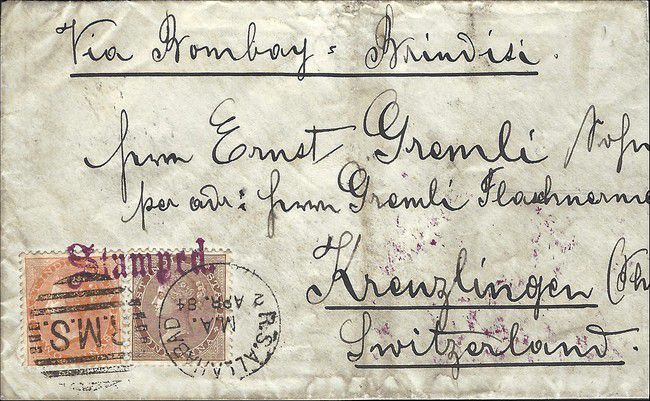 Via Bombay = Brindisi.
Herrn Ernst Gremli Sohn
per adr: Herrn Gremli Flaschnerme
Stamped.
Kreuzlingen (Th
Switzerland.
R.M.S.
R.S. ALLAHABAD
M.A.
2 APR. 84